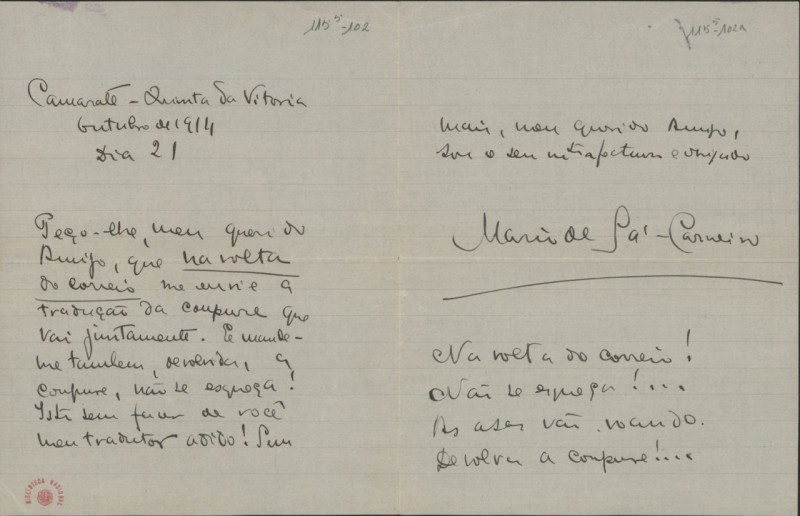 115⁵-102
Camarate – Quinta da Vitoria
Outubro de 1914
Dia 21
Peço-lhe, meu querido
Amigo, que na volta
do correio me envie a
tradução da coupure que
vai juntamente. E mande-
me tambem, devolvida, a
coupure, não se esqueça!
Isto sem fazer de você
meu tradutor adido! Sem
BIBLIOTHECA NACIONAL
115⁵-102a
mais, meu querido Amigo,
sou o seu e obrigado
Mario de Sá-Carneiro
Na volta do correio!
Não se esqueça!...
As asas vão voando.
Devolva a coupure!...